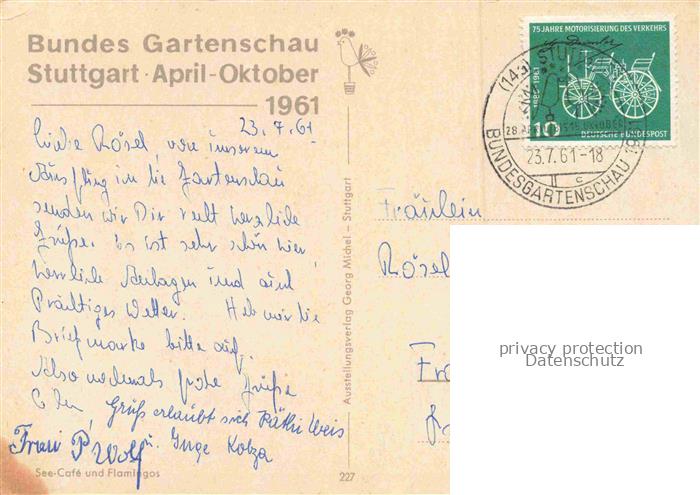 Bundes Gartenschau
Stuttgart · April-Oktober
1961
23.7.61
Liebe Rösel, von unserem
Ausflug in die Gartenschau
senden wir Dir recht herzliche
Grüße. Es ist sehr schön hier,
herrliche Anlagen und auch
Prächtiges Wetter. Heb mir die
Briefmarke bitte auf.
Also nochmals gute Grüße
Grüß erlaubt sich Käthi Weis
Frau P. Wolf u. Inge Kobza
See-Café und Flamingos
227
Ausstellungsverlag Georg Michel – Stuttgart
75 JAHRE MOTORISIERUNG DES VERKEHRS
1886-1961
10
DEUTSCHE BUNDESPOST
(14a) STU
28. APR
OKTOBER
23.7.61-18
c
BUNDESGARTENSCHAU 1961
Fräulein
Rösel
privacy protection
Datenschutz
Fra